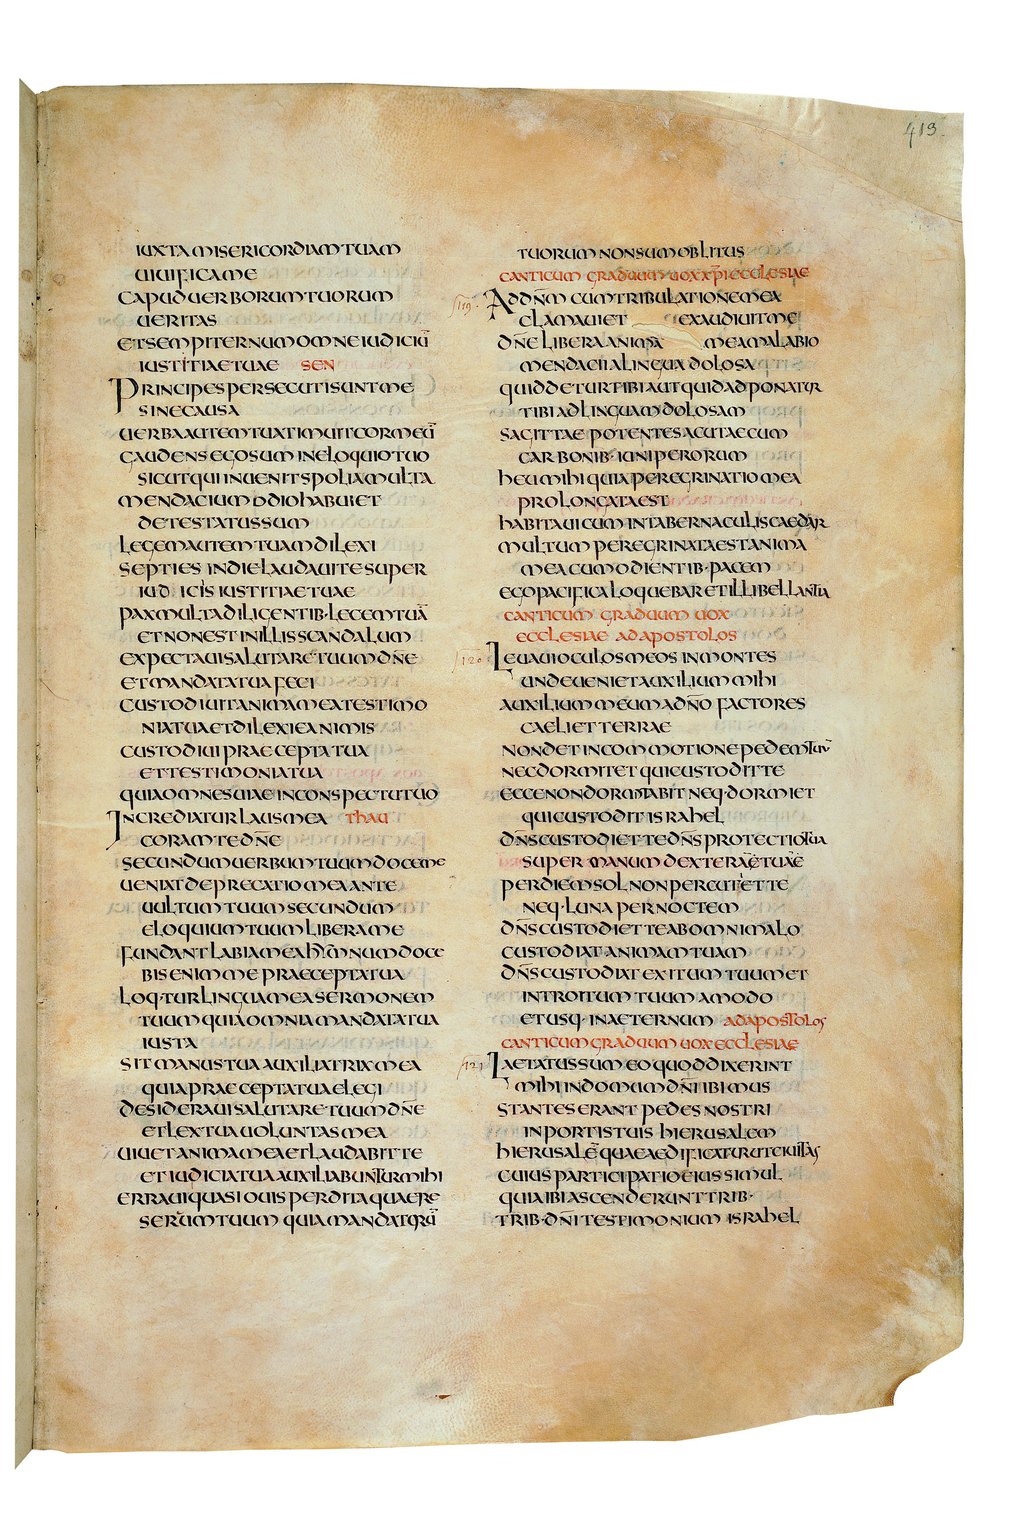 413.
IUXTA MISERICORDIAM TUAM
UIUIFICA ME
CAPUD UERBORUM TUORUM
UERITAS
ET SEMPITERNUM OMNE IUDICIŪ
IUSTITIAE TUAE SEN
PRINCIPES PERSECUTI SUNT ME
SINE CAUSA
UERBA AUTEM TUA TIMUIT COR MEŪ
GAUDENS EGO SUM IN ELOQUIO TUO
SICUT QUI INUENIT SPOLIA MULTA
MENDACIUM ODIO HABUI ET
DETESTATUS SUM
LEGEM AUTEM TUAM DILEXI
SEPTIES IN DIE LAUDAUI TE SUPER
IUDICIIS IUSTITIAE TUAE
PAX MULTA DILIGENTIB· LEGEM TUĀ
ET NON EST IN ILLIS SCANDALUM
EXPECTAUI SALUTARE TUUM DN̄E
ET MANDATA TUA FECI
CUSTODIUIT ANIMA MEA TESTIMO
NIA TUA ET DILEXI EA NIMIS
CUSTODIUI PRAECEPTA TUA
ET TESTIMONIA TUA
QUIA OMNES UIAE IN CONSPECTU TUO
INGREDIATUR LAUS MEA THAU
CORAM TE DN̄E
SECUNDUM UERBUM TUUM DOCE ME
UENIAT DEPRECATIO MEA ANTE
UULTUM TUUM SECUNDUM
ELOQUIUM TUUM LIBERA ME
FUNDANT LABIA MEA HYM̄NUM DOCE
BIS ENIM ME PRAECEPTA TUA
LOQ·TUR LINGUA MEA SERMONEM
TUUM QUIA OMNIA MANDATA TUA
IUSTA
SIT MANUS TUA AUXILIATRIX MEA
QUIA PRAECEPTA TUA ELEGI
DESIDERAUI SALUTARE TUUM DN̄E
ET LEX TUA UOLUNTAS MEA
UIUET ANIMA MEA ET LAUDABIT TE
ET IUDICIA TUA AUXILIABUNTUR MIHI
ERRAUI QUASI OUIS PERDITA QUAERE
SERUUM TUUM QUIA MANDATORŪ
TUORUM NON SUM OBLITUS
CANTICUM GRADUUM UOX XP̄I ECCLESIAE
119· AD DN̄M CUM TRIBULATIONE MEA
CLAMAUI ET EXAUDIUIT ME
DN̄E LIBERA ANIMA MEAM A LABIO
MENDACII A LINGUA DOLOSA
QUID DETUR TIBI AUT QUID ADPONATUR
TIBI AD LINGUAM DOLOSAM
SAGITTAE POTENTES ACUTAE CUM
CARBONIB· IUNIPERORUM
HEU MIHI QUIA PEREGRINATIO MEA
PROLONGATA EST
HABITAUI CUM IN TABERNACULIS CAEDAR
MULTUM PEREGRINATA EST ANIMA
MEA CUM ODIENTIB· PACEM
EGO PACIFICA LOQUEBAR ET ILLI BELLANTIA
CANTICUM GRADUUM UOX
ECCLESIAE AD APOSTOLOS
120 LEUAUI OCULOS MEOS IN MONTES
UNDE UENIET AUXILIUM MIHI
AUXILIUM MEUM A DN̄O FACTORES
CAELI ET TERRAE
NON DET IN COMMOTIONE PEDEM TUŪ
NEC DORMITET QUI CUSTODIT TE
ECCE NON DORMITABIT NEQ· DORMIET
QUI CUSTODIT ISRAHEL
DN̄S CUSTODIET TE DN̄S PROTECTIO TUA
SUPER MANUM DEXTERAE TUAE
PER DIEM SOL NON PERCUTIET TE
NEQ· LUNA PER NOCTEM
DN̄S CUSTODIET TE AB OMNI MALO
CUSTODIAT ANIMAM TUAM
DN̄S CUSTODIAT EXITUM TUUM ET
INTROITUM TUUM AMODO
ET USQ· IN AETERNUM AD APOSTOLOS
CANTICUM GRADUUM UOX ECCLESIAE
121 LAETATUS SUM EO QUOD DIXERINT
MIHI IN DOMUM DN̄I IBIMUS
STANTES ERANT PEDES NOSTRI
IN PORTIS TUIS HIERUSALEM
HIERUSALĒ QUAE AEDIFICATUR UT CIUITAS
CUIUS PARTICIPATIO EIUS SIMUL
QUIA IBI ASCENDERUNT TRIB·
TRIB· DN̄I TESTIMONIUM ISRAHEL